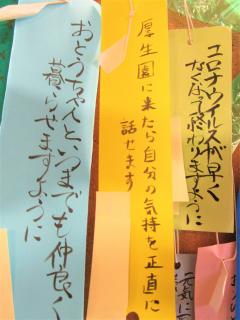 コロナウイルスが早く
なくなって終わりますように
厚生園に来たら自分の気持を正直に
話せます
おとうちゃんと、いつまでも仲良く
暮らせますように
元気に